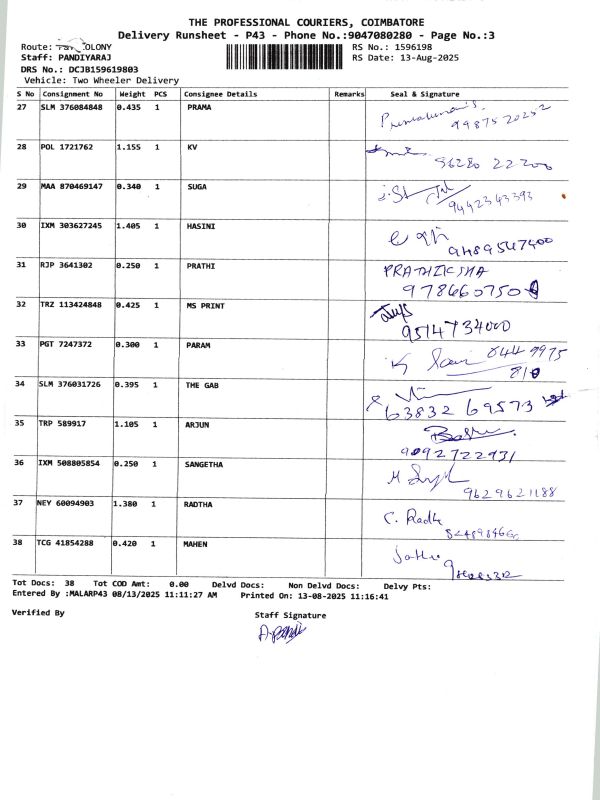 THE PROFESSIONAL COURIERS, COIMBATORE
Delivery Runsheet - P43 - Phone No.:9047080280 - Page No.:3
Route: OLONY
RS No.: 1596198
Staff: PANDIYARAJ
RS Date: 13-Aug-2025
DRS No.: DCJB159619803
Vehicle: Two Wheeler Delivery
S No Consignment No Weight PCS Consignee Details Remarks Seal & Signature
27 SLM 376084848 0.435 1 PRAMA
99875 20252
28 POL 1721762 1.155 1 KV
96280 22200
29 MAA 870469147 0.340 1 SUGA
9442343393
30 IXM 303627245 1.405 1 HASINI
9489547400
31 RJP 3641302 0.250 1 PRATHI PRATHIKSHA
978660750
32 TRZ 113424848 0.425 1 MS PRINT
9514734000
33 PGT 7247372 0.300 1 PARAM
34 SLM 376031726 0.395 1 THE GAB
63832 69573
35 TRP 589917 1.105 1 ARJUN
9092722931
36 IXM 508805854 0.250 1 SANGETHA
9629621188
37 NEY 60094903 1.380 1 RADTHA C. Radha
38 TCG 41854288 0.420 1 MAHEN
Tot Docs: 38 Tot COD Amt: 0.00 Delvd Docs: Non Delvd Docs: Delvy Pts:
Entered By :MALARP43 08/13/2025 11:11:27 AM Printed On: 13-08-2025 11:16:41
Verified By Staff Signature
A.pandi